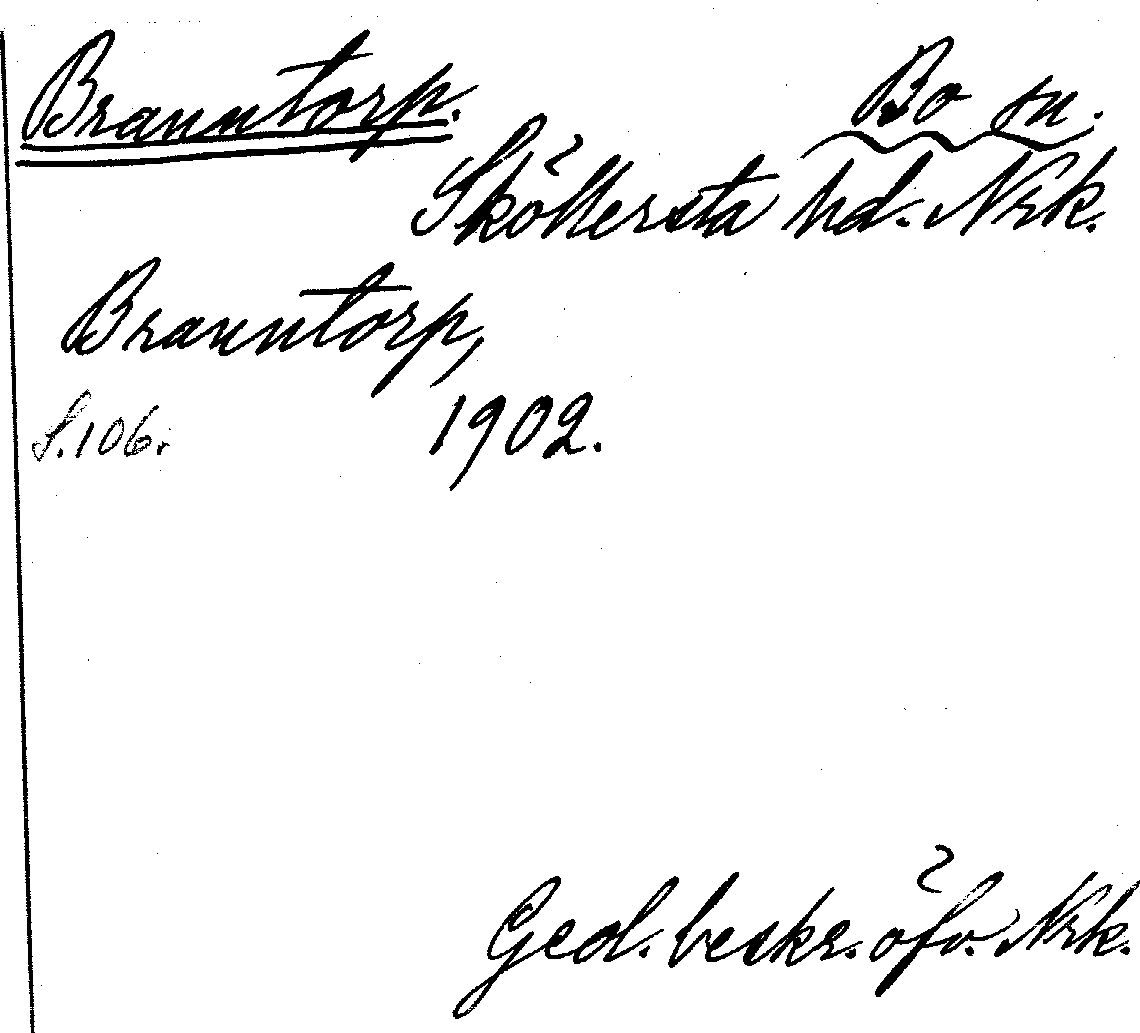 Branntorp. Bo sn.
Sköllersta hd. Nrk.
Branntorp,
S. 106. 1902.
Geol. beskr. öfv. Nrk.